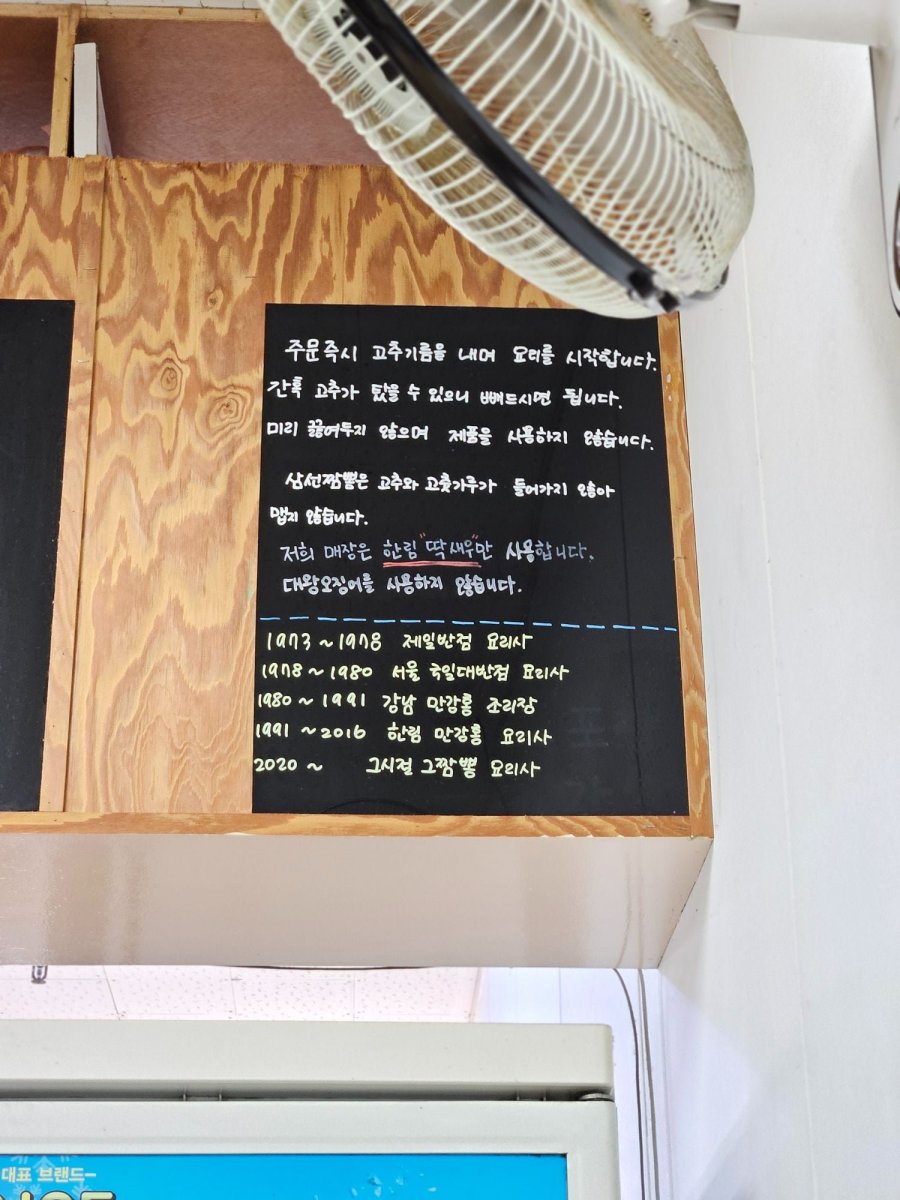 주문즉시 고추기름을 내며 요리를 시작합니다.
간혹 고추가 탔을 수 있으니 빼드시면 됩니다.
미리 끓여두지 않으며 제품을 사용하지 않습니다.
삼선짬뽕은 고추와 고춧가루가 들어가지 않아
맵지 않습니다.
저희 매장은 한림 "딱새우"만 사용합니다.
대왕오징어를 사용하지 않습니다.
1973~1978 제일반점 요리사
1978~1980 서울 국일대반점 요리사
1980~1991 강남 만강홍 조리장
1991~2016 한림 만강홍 요리사
2020~ 그시절 그짬뽕 요리사
대표 브랜드-